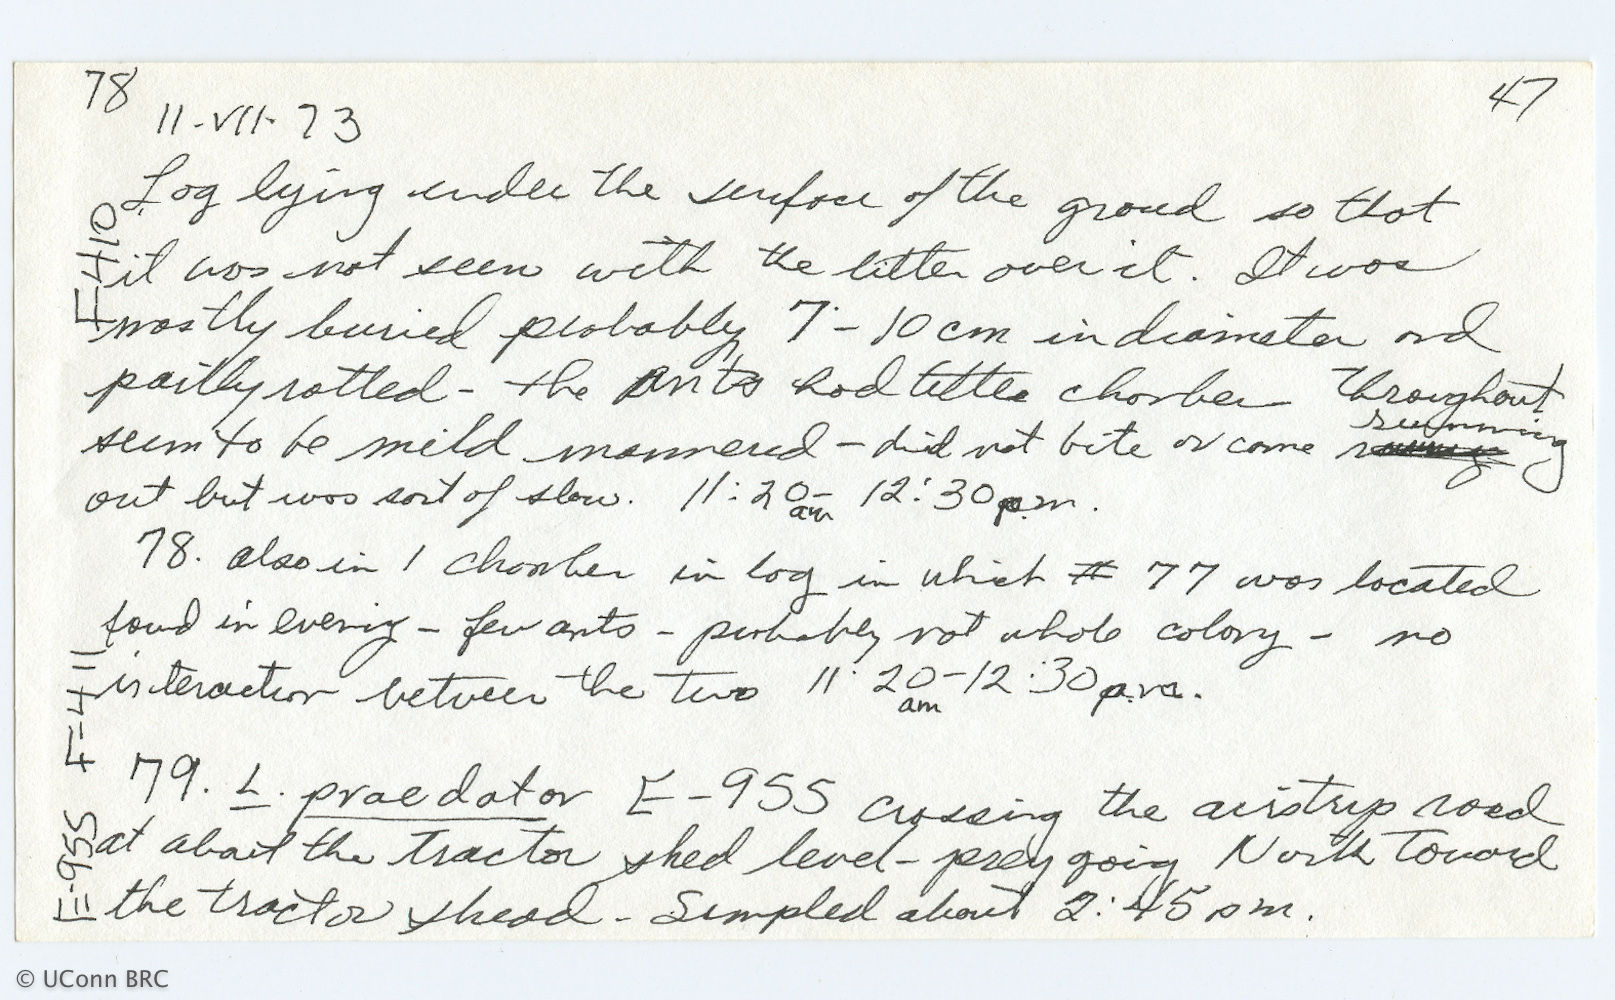 78
47
11-VII-73
Log lying under the surface of the ground so that
F-410
it was not seen with the litter over it. It was
mostly buried probably 7-10 cm in diameter and
partly rotted - the ants had little chamber throughout
seem to be mild mannered - did not bite or come running
out but was sort of slow. 11:20 am - 12:30 p.m.
78. also in 1 chamber in log in which # 77 was located
found in evening - few ants - probably not whole colony - no
F-411
interaction between the two 11:20 am - 12:30 p.m.
79. L. praedator E-955 crossing the airstrip road
E-955
at about the tractor shed level - prey going North toward
the tractor shead - Sampled about 2:45 pm.
© UConn BRC